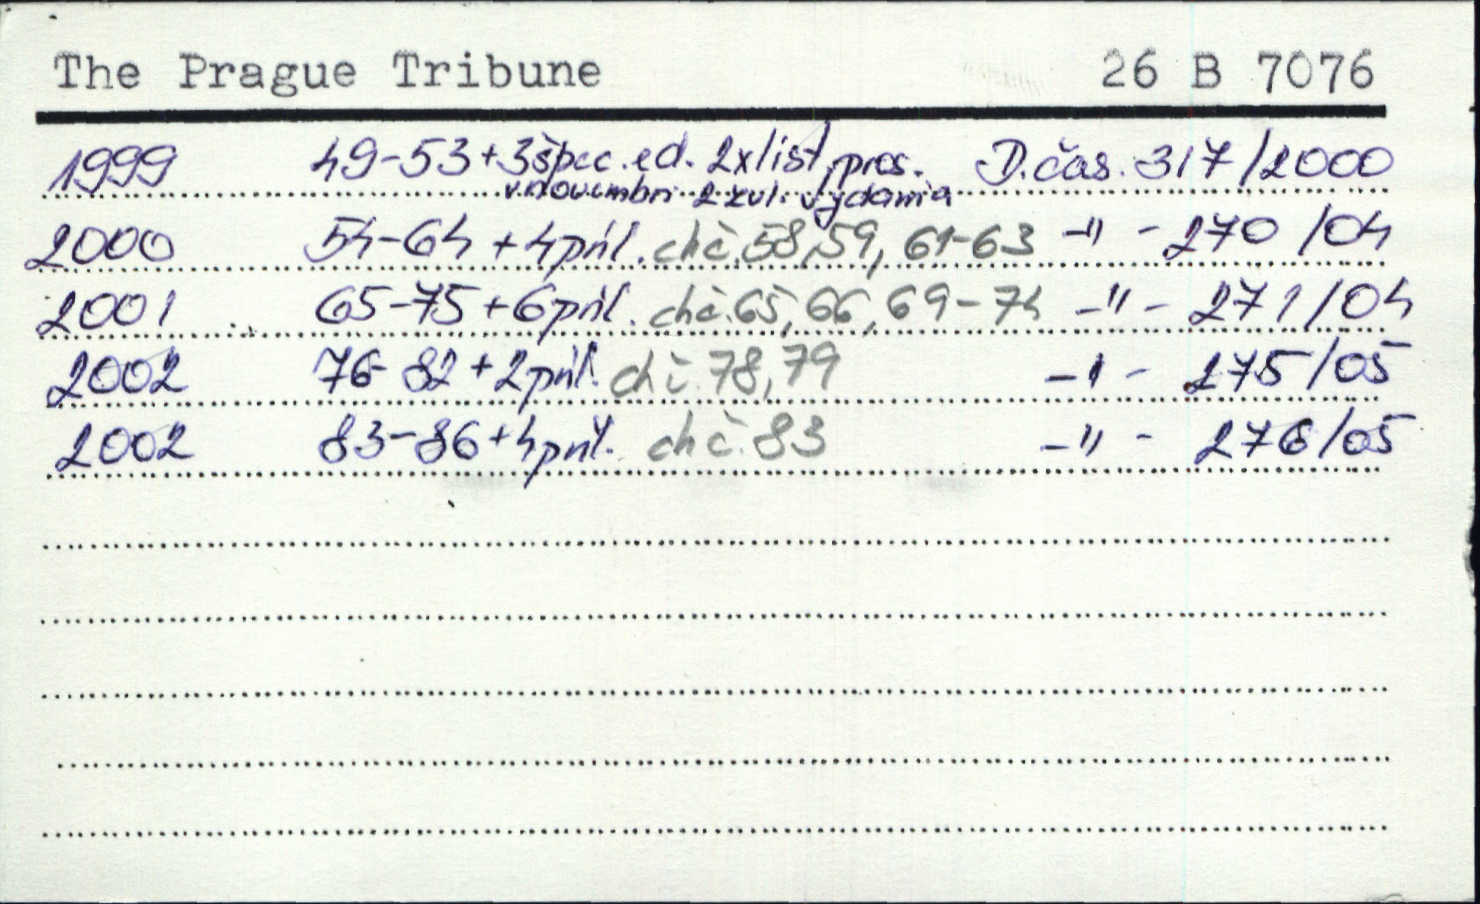 The Prague Tribune 26 B 7076
1999 49-53+3špec.ed. 2xlist, pros. D.čas. 317/2000
v novembri 2 zvl. vydania
2000 54-64 + 4príl. chč. 58,59, 61-63 -"- 270/04
2001 65-75 + 6príl. chč. 65, 66, 69-74 -"- 271/04
2002 76-82 + 2príl. chč. 78,79 -"- 275/05
2002 83-86 + 4príl. chč. 83 -"- 276/05